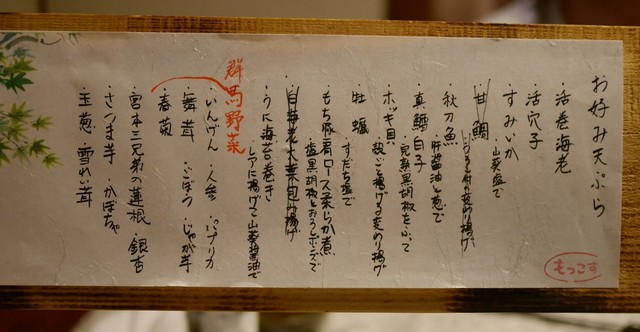 お好み天ぷら
・活巻海老
・活穴子
・すみいか
山葵塩で
・甘鯛
・秋刀魚
肝醤油と葱で
・真鱈白子
完熟黒胡椒をふって
・ホッキ貝
殻ごと揚げる変わり揚げ
・牡蠣
すだち塩で
・もち豚肩ロース柔らか煮
塩黒胡椒とおろしポンズで
・白海老大葉包み揚げ
・うに海苔巻き
レアに揚げて山葵醤油で
群馬野菜
・いんげん ・人参 ・パプリカ
・舞茸 ・ごぼう ・じゃが芋
・春菊
・宮本三兄弟の蓮根 ・銀杏
・さつま芋 ・かぼちゃ
・玉葱 ・雪れい茸
もっこす